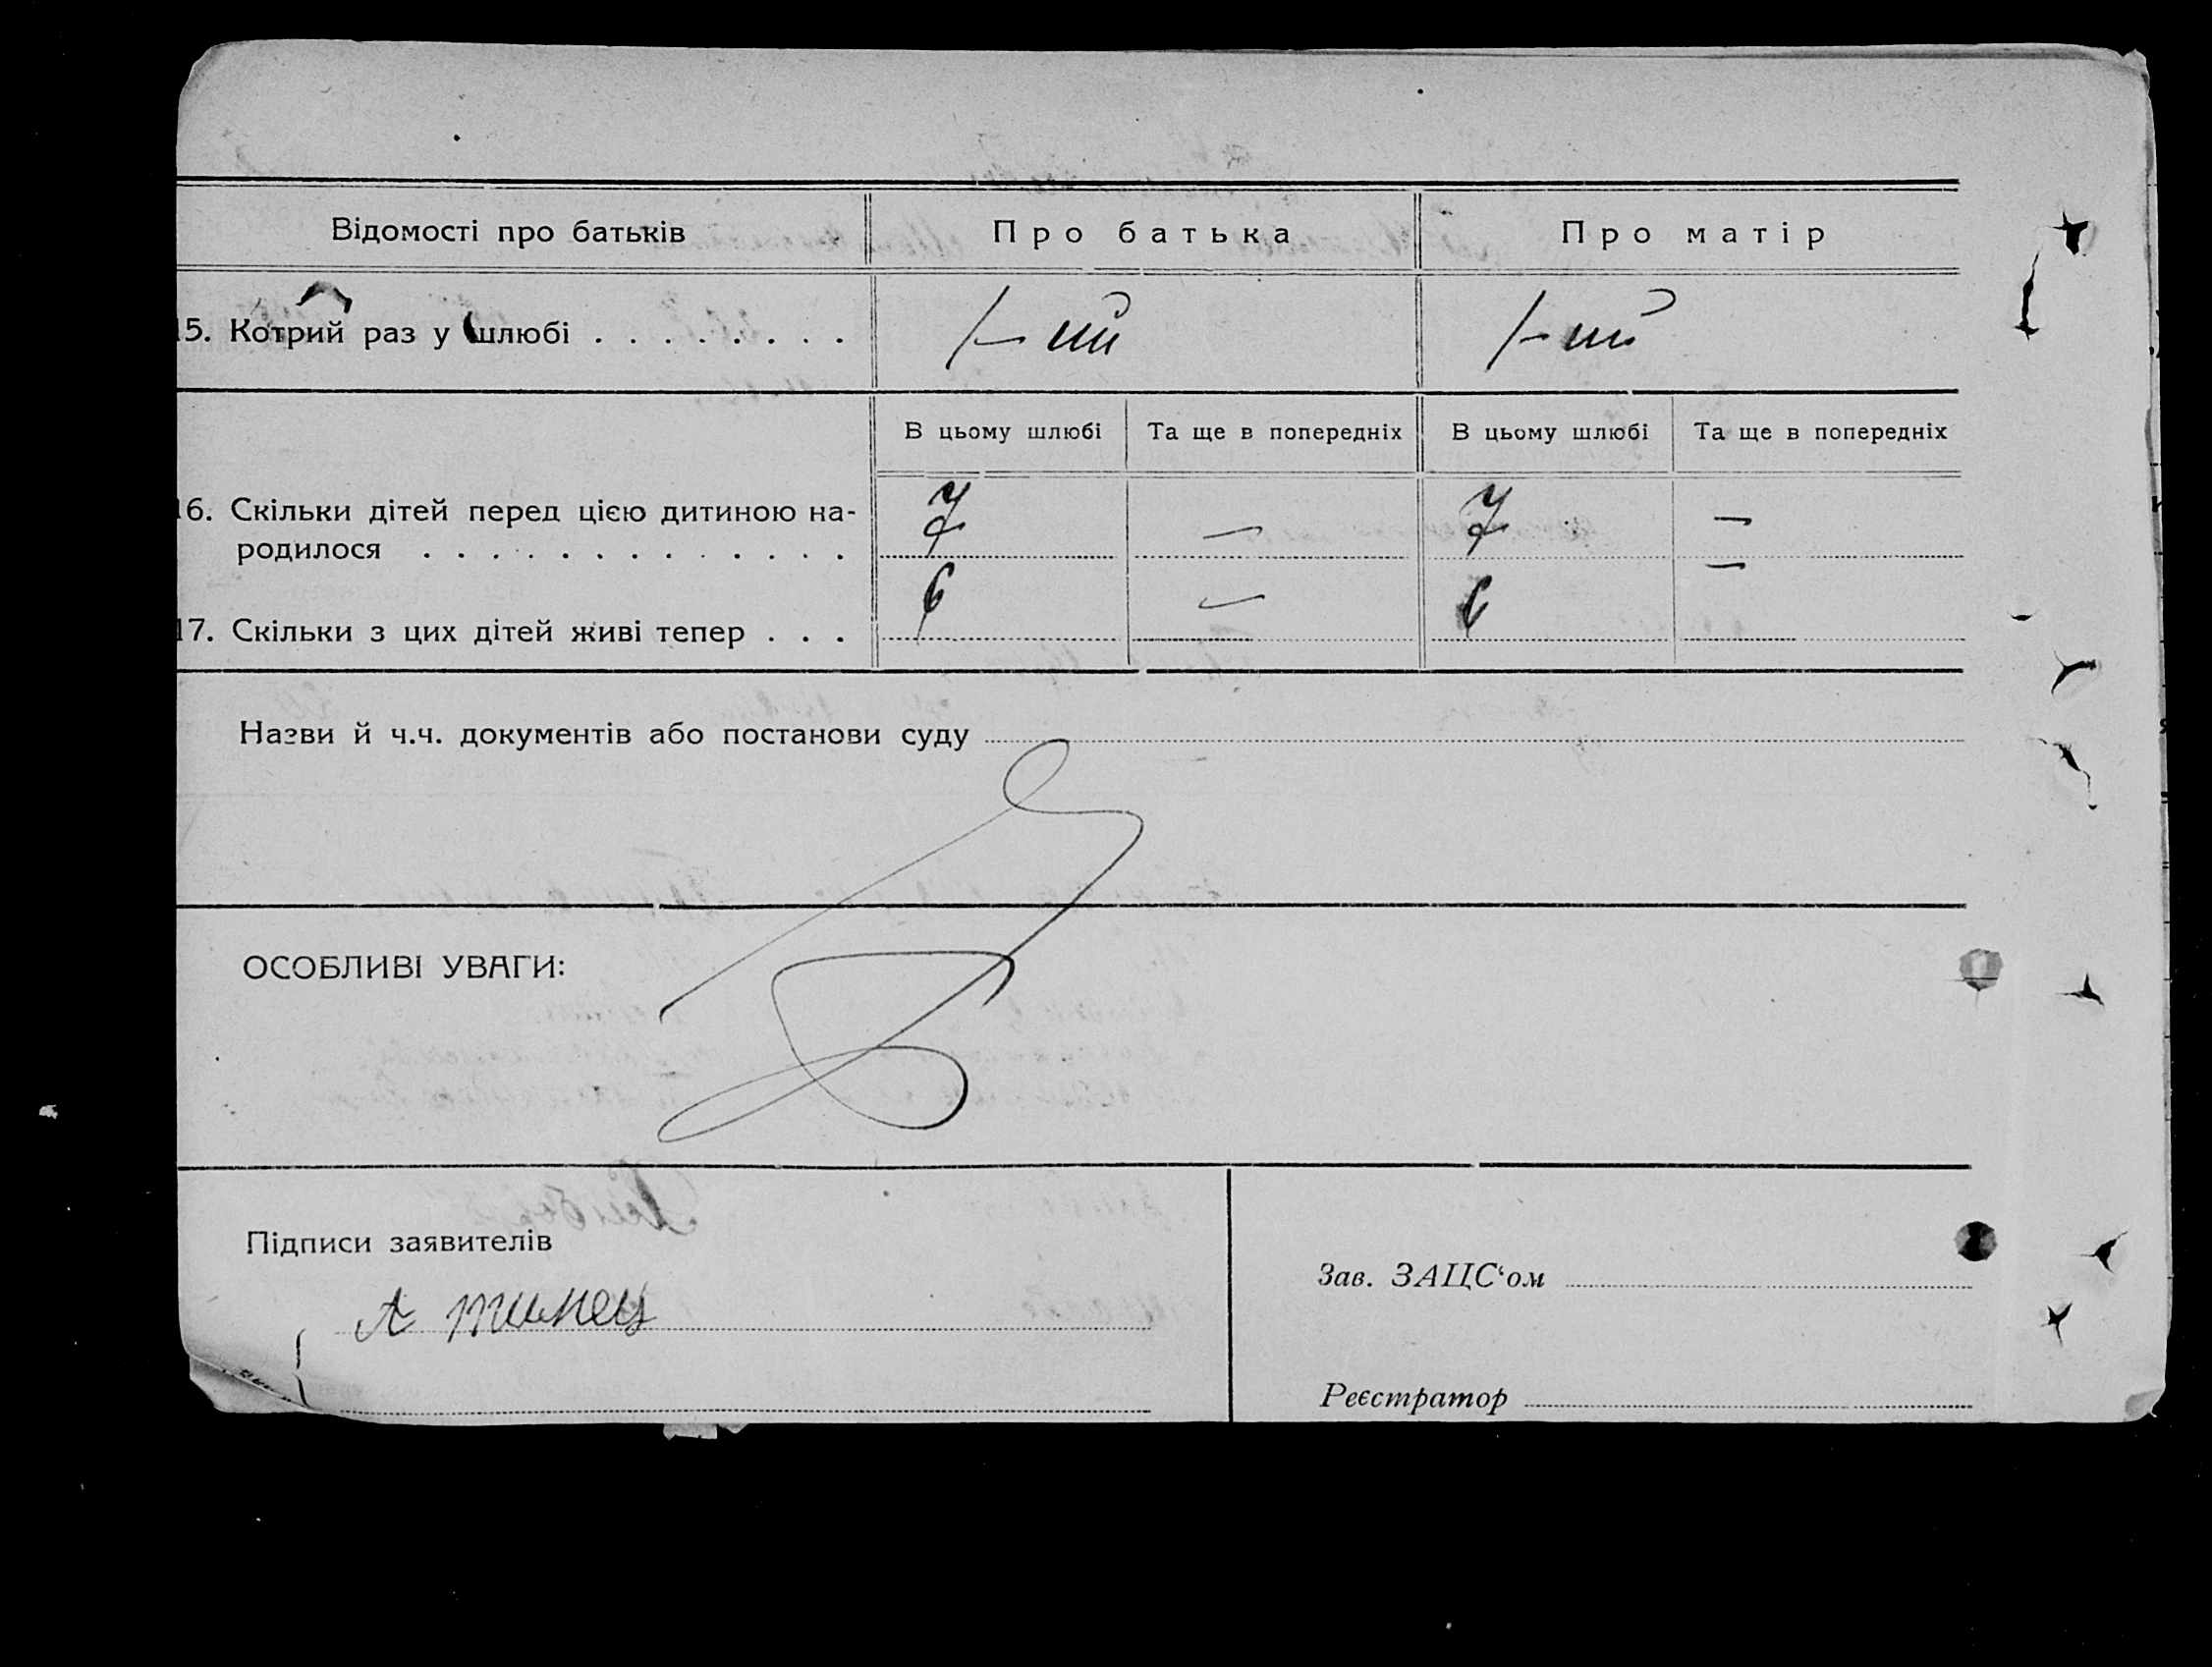 Відомості про батьків Про батька Про матір
15. Котрий раз у шлюбі . . . . . . . . 1-ий 1-ий
В цьому шлюбі Та ще в попередніх В цьому шлюбі Та ще в попередніх
16. Скільки дітей перед цією дитиною на-
родилося . . . . . . . . . . . . . 7 — 7 —
17. Скільки з цих дітей живі тепер . . . 6 — 6 —
Назви й ч.ч. документів або постанови суду
ОСОБЛИВІ УВАГИ:
Підписи заявителів
А
Зав. ЗАЦС‘ом
Реєстратор